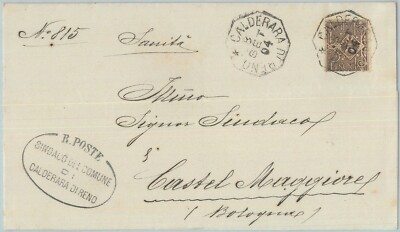 No. 815
Sanità
CALDERARA DI RENO
SET
04
Illmo
Signor Sindaco
di
Castel Maggiore
(Bologna)
R. POSTE
SINDACO DEL COMUNE
DI
CALDERARA DI RENO